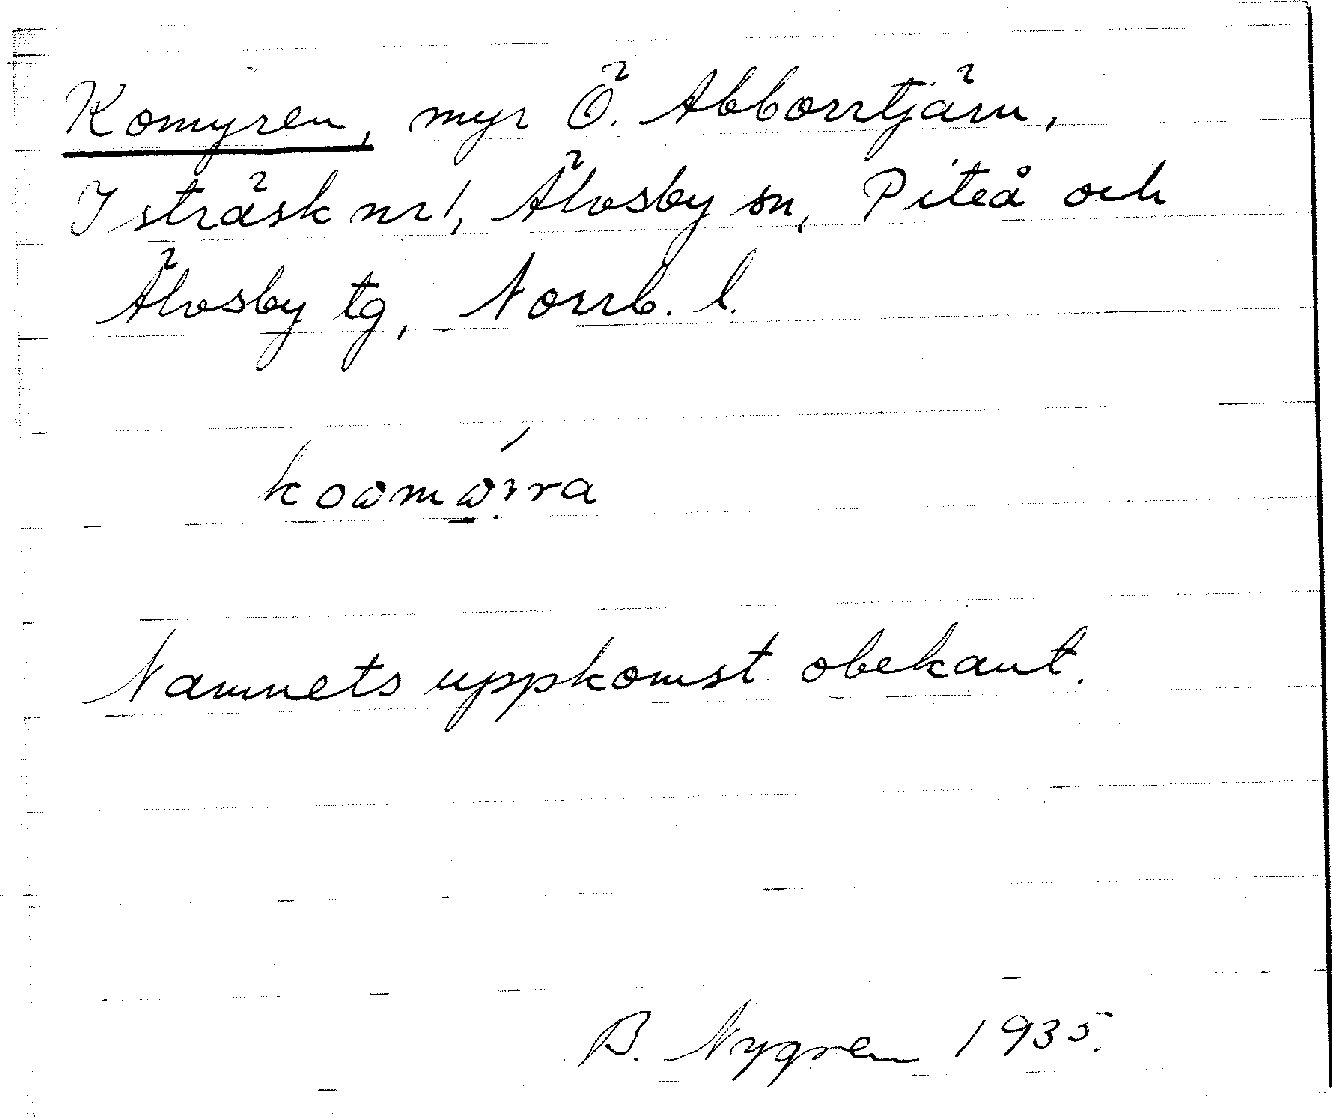 Komyren, myr Ö. Abborrtjärn,
Isträsk nr 1, Älvsby sn, Piteå och
Älvsby tg, Norrb. l.
Namnets uppkomst obekant.
B. Nygren 1935.